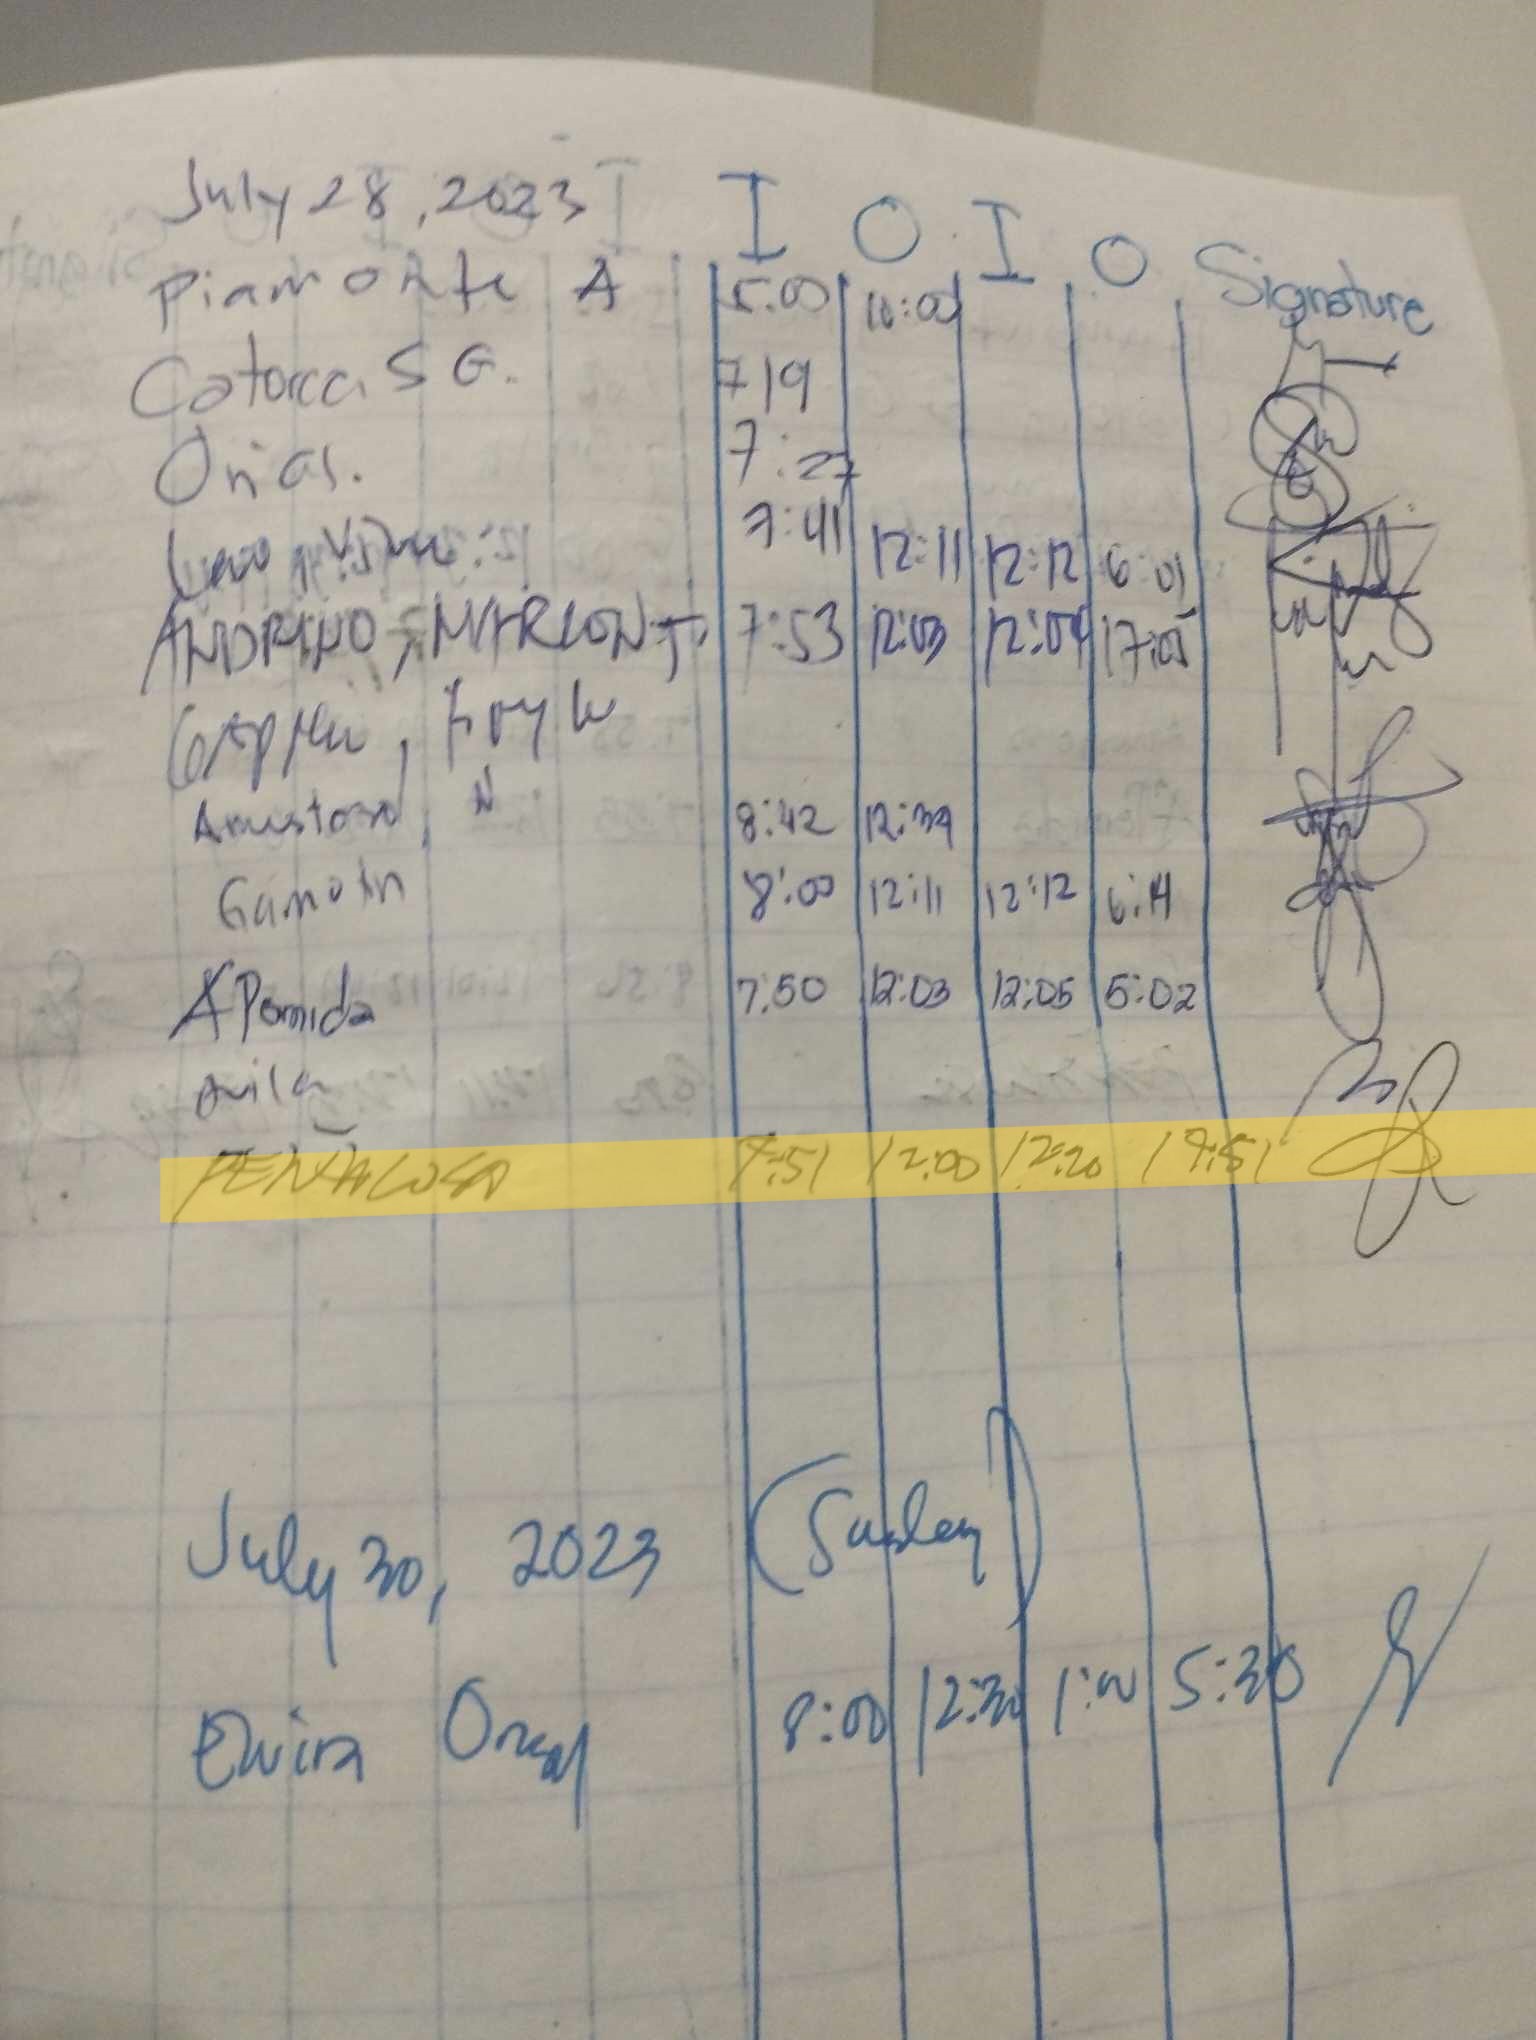 July 28, 2023 I O I O Signature
Piamonte A 5:00 10:00
Catorcas G. 719
Orias. 7:27
7:41 12:11 12:12 6:01
ANDRINO, MARLON J. 7:53 12:03 12:04 17:05
8:42 12:39
Gamotin 8:00 12:11 12:12 6:14
A Pomida 7:50 12:03 12:05 5:02
Avila
PEÑALOSA 7:51 12:00 12:20 17:51
July 30, 2023 (Sunday)
Elvira 8:00 12:30 1:00 5:30